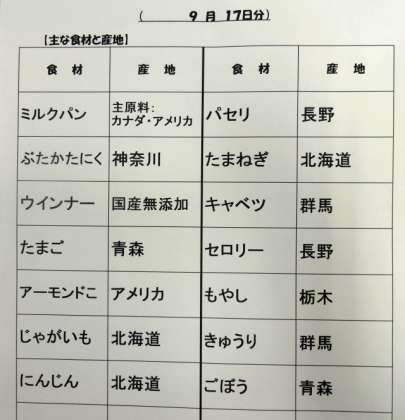 ( 9 月 17日分)
【主な食材と産地】
食 材 産 地 食 材 産 地
ミルクパン 主原料: カナダ・アメリカ パセリ 長野
ぶたかたにく 神奈川 たまねぎ 北海道
ウインナー 国産無添加 キャベツ 群馬
たまご 青森 セロリー 長野
アーモンドこ アメリカ もやし 栃木
じゃがいも 北海道 きゅうり 群馬
にんじん 北海道 ごぼう 青森